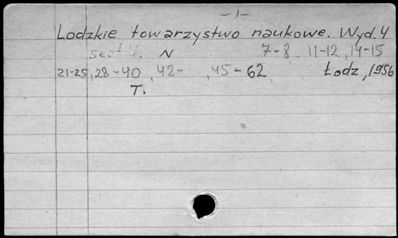 -1-
Lodzkie towarzystwo naukowe. Wyd. 4
sect 4. N 7-8, 11-12, 14-15
21-25, 28-40, 42- , 45-62 Łodz, 1956
T.